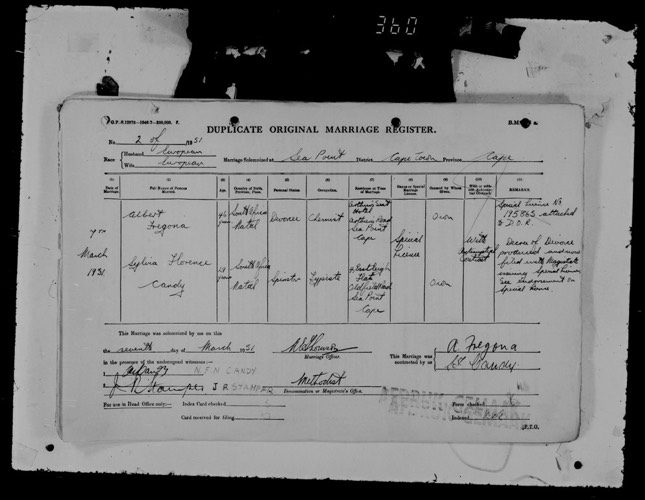 360
G.P.-S.12976—1946-7—200,000. S.
DUPLICATE ORIGINAL MARRIAGE REGISTER.
No. 2 of 1951
Race Husband European
Wife European
Marriage Solemnized at Sea Point District Cape Town Province Cape
(1) (2) (3) (4) (5) (6) (7) (8) (9) (10) (11)
Date of Marriage. Full Names of Persons Married. Age. Country of Birth, Province, Place. Personal Status. Occupation. Residence at Time of Marriage. Banns or Special Licence. Consent by Whom Given. With or without Antenuptial Contract. REMARKS.
7th March 1951
Albert Fregona
46 years
South Africa Natal
Divorcee
Chemist
Arthur's Seat Hotel
Arthurs Road
Sea Point
Cape
Special Licence
Own
With Antenuptial Contract
Special Licence No
195863 attached
to D.O.R.
Decree of Divorce
produced and now
filed with Magistrate
issuing Special Licence
See endorsement on
Special Licence
Sylvia Florence Candy
South Africa Natal
Spinster
Typiste
Flat
Sea Point
Cape
Own
This Marriage was solemnized by us on this
the seventh day of March 1951
Marriage Officer.
This Marriage was contracted by us
A Fregona
Candy
in the presence of the undersigned witnesses:—
1. N.F.N CANDY
2. J R Stamper J R STAMPER
Methodist
Denomination or Magistrate's Office.
For use in Head Office only:— Index Card checked
Form checked
Card received for filing
Indexed
P.T.O.